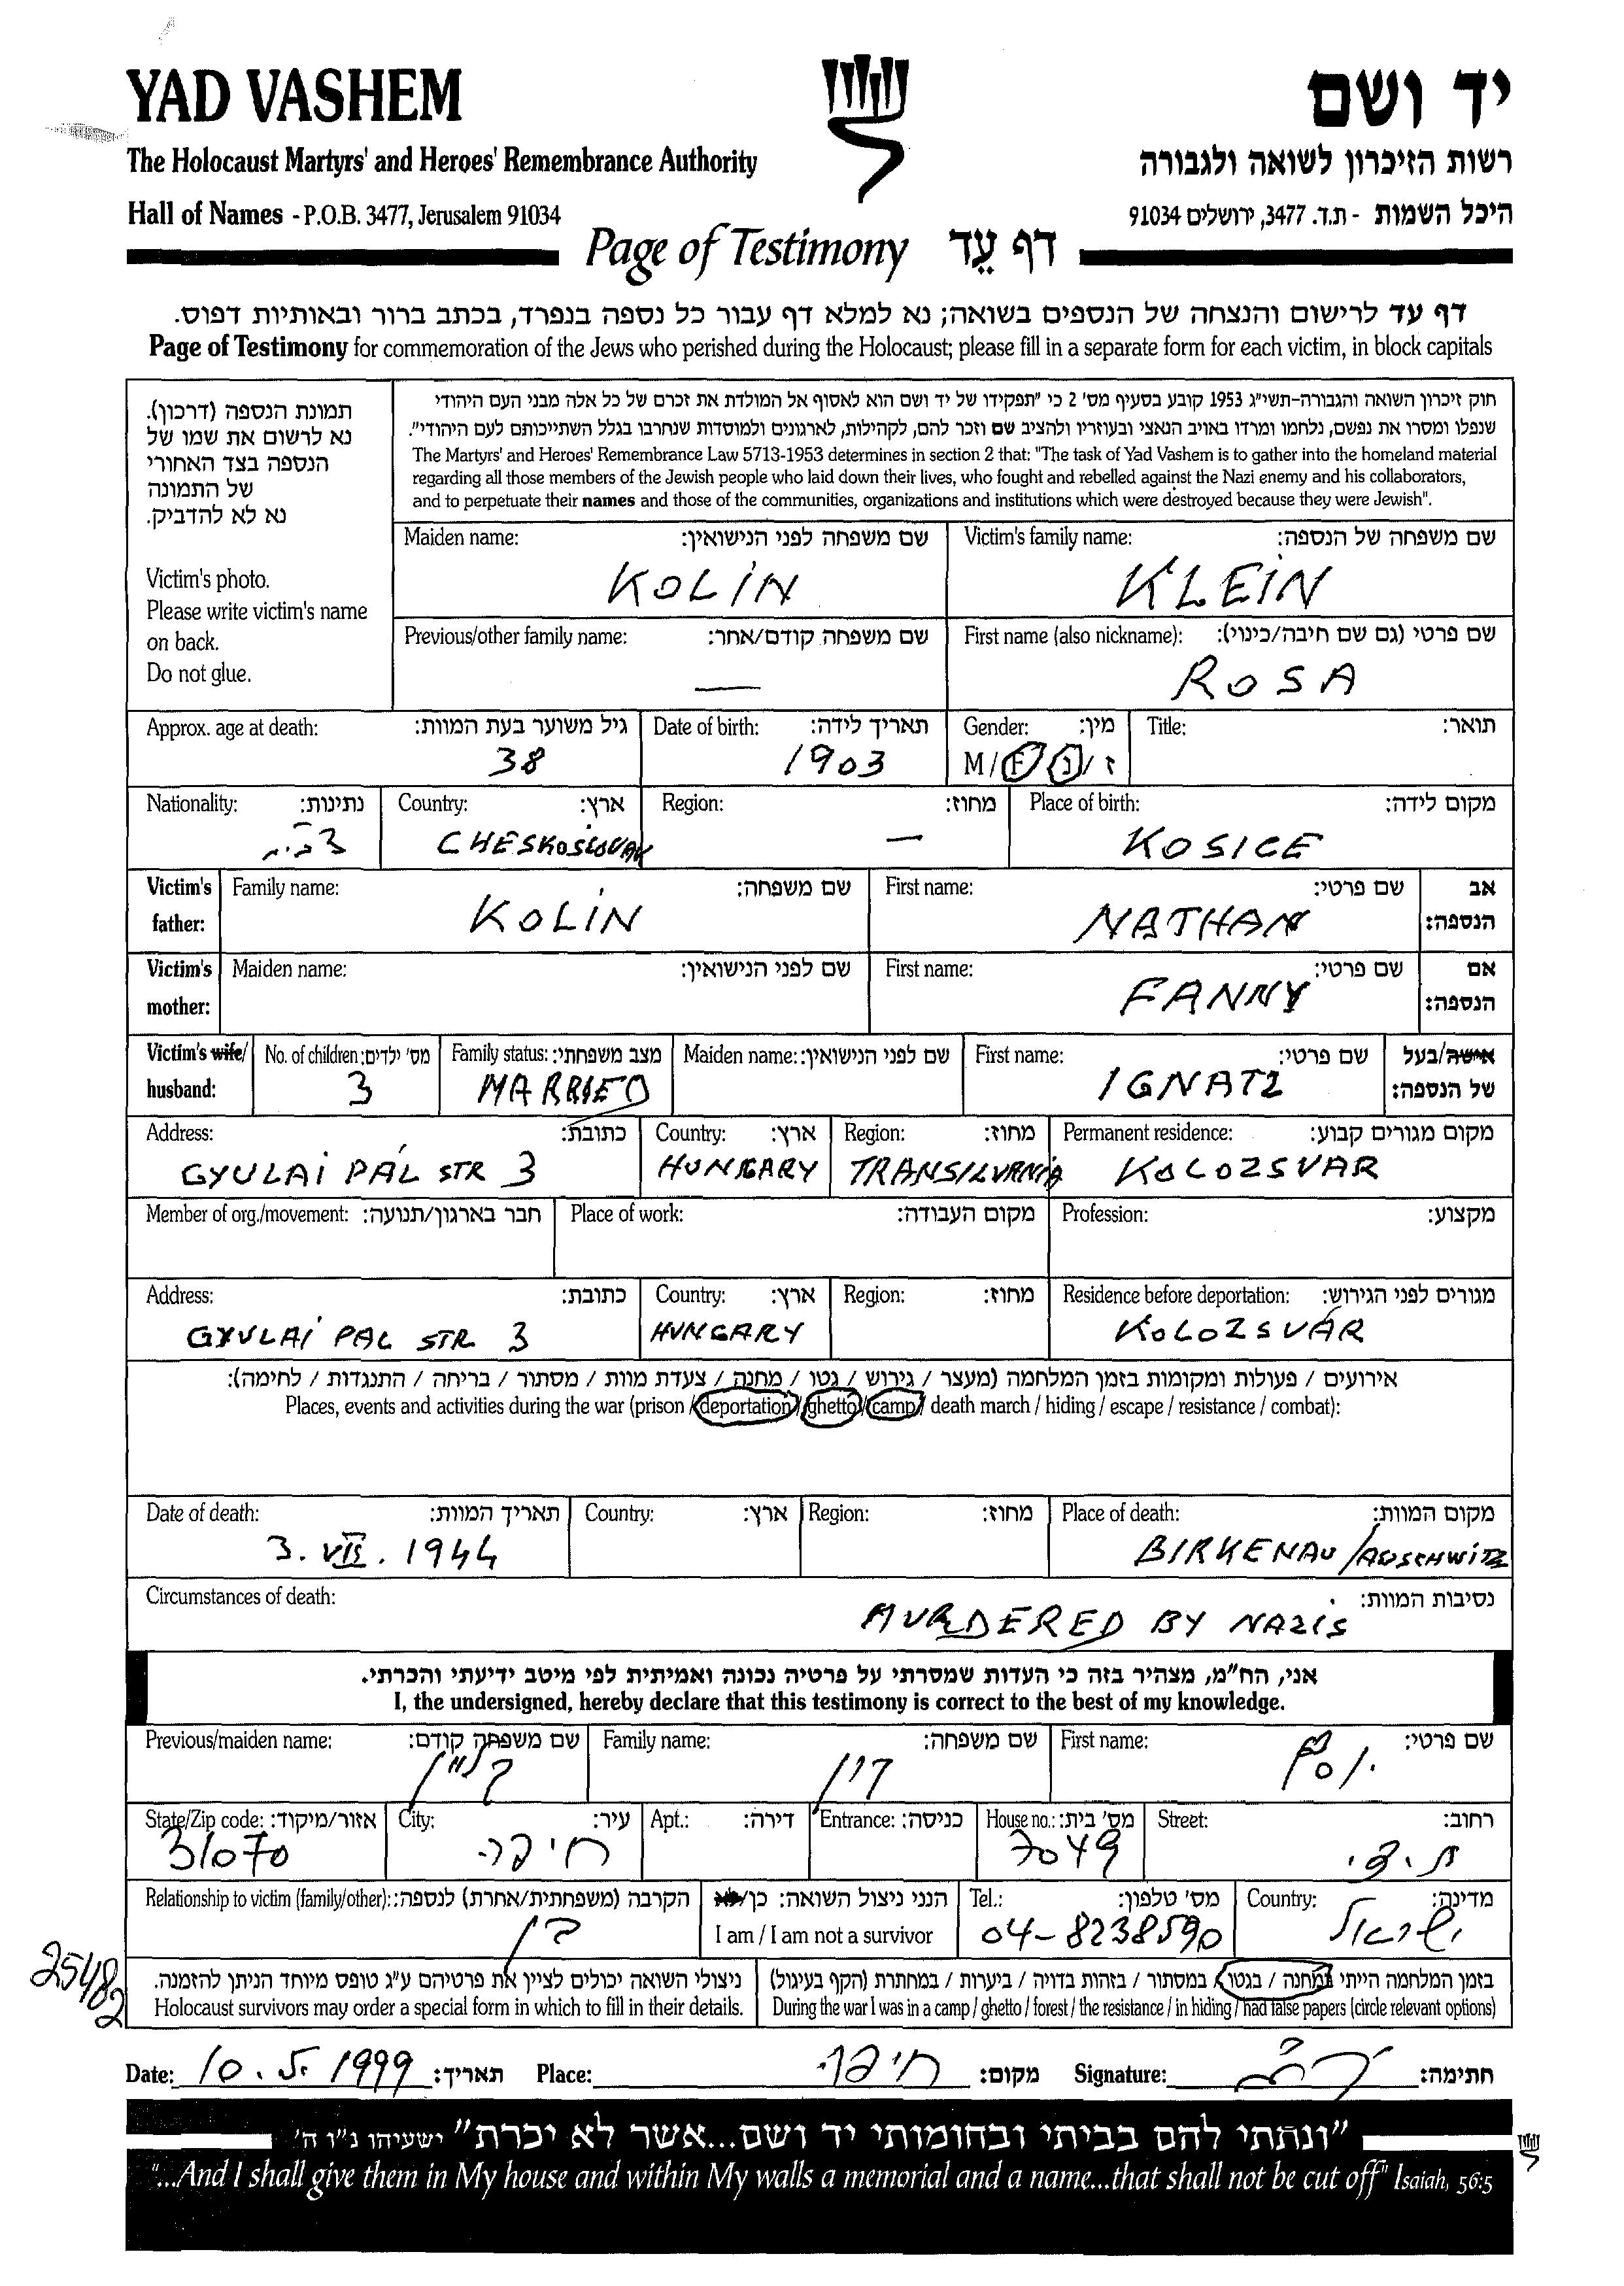 YAD VASHEM
יד ושם
The Holocaust Martyrs' and Heroes' Remembrance Authority
רשות הזיכרון לשואה ולגבורה
Hall of Names - P.O.B. 3477, Jerusalem 91034
היכל השמות - ת.ד. 3477, ירושלים 91034
Page of Testimony דף עֵד
דף עד לרישום והנצחה של הנספים בשואה; נא למלא דף עבור כל נספה בנפרד, בכתב ברור ובאותיות דפוס.
Page of Testimony for commemoration of the Jews who perished during the Holocaust; please fill in a separate form for each victim, in block capitals
תמונת הנספה (דרכון).
נא לרשום את שמו של
הנספה בצד האחורי
של התמונה
נא לא להדביק.
Victim's photo.
Please write victim's name
on back.
Do not glue.
חוק זיכרון השואה והגבורה-תשי"ג 1953 קובע בסעיף מס' 2 כי "תפקידו של יד ושם הוא לאסוף אל המולדת את זכרם של כל אלה מבני העם היהודי
שנפלו ומסרו את נפשם, נלחמו ומרדו באויב הנאצי ובעוזריו ולהציב שם וזכר להם, לקהילות, לארגונים ולמוסדות שנחרבו בגלל השתייכותם לעם היהודי".
The Martyrs' and Heroes' Remembrance Law 5713-1953 determines in section 2 that: "The task of Yad Vashem is to gather into the homeland material
regarding all those members of the Jewish people who laid down their lives, who fought and rebelled against the Nazi enemy and his collaborators,
and to perpetuate their names and those of the communities, organizations and institutions which were destroyed because they were Jewish".
Maiden name: שם משפחה לפני הנישואין: Victim's family name: שם משפחה של הנספה:
KOLIN KLEIN
Previous/other family name: שם משפחה קודם/אחר: First name (also nickname): שם פרטי (גם שם חיבה/כינוי):
— ROSA
Approx. age at death: גיל משוער בעת המוות: Date of birth: תאריך לידה: Gender: מין: Title: תואר:
38 1903 M / F נ / ז
Nationality: נתינות: Country: ארץ: Region: מחוז: Place of birth: מקום לידה:
CHESKOSLOVAK — KOSICE
Victim's father: Family name: שם משפחה: First name: שם פרטי: אב הנספה:
KOLIN NATHAN
Victim's mother: Maiden name: שם לפני הנישואין: First name: שם פרטי: אם הנספה:
FANNY
Victim's wife/ husband: No. of children: מס' ילדים: Family status: מצב משפחתי: Maiden name: שם לפני הנישואין: First name: שם פרטי: אישה/בעל של הנספה:
3 MARRIED IGNATZ
Address: כתובת: Country: ארץ: Region: מחוז: Permanent residence: מקום מגורים קבוע:
GYULAI PÁL STR 3 HUNGARY TRANSILVANIA KOLOZSVAR
Member of org./movement: חבר בארגון/תנועה: Place of work: מקום העבודה: Profession: מקצוע:
Address: כתובת: Country: ארץ: Region: מחוז: Residence before deportation: מגורים לפני הגירוש:
GYULAI PAL STR 3 HUNGARY KOLOZSVÁR
אירועים / פעולות ומקומות בזמן המלחמה (מעצר / גירוש / גטו / מחנה / צעדת מוות / מסתור / בריחה / התנגדות / לחימה):
Places, events and activities during the war (prison / deportation / ghetto / camp / death march / hiding / escape / resistance / combat):
Date of death: תאריך המוות: Country: ארץ: Region: מחוז: Place of death: מקום המוות:
3. VII. 1944 BIRKENAU/AUSCHWITZ
Circumstances of death: נסיבות המוות:
MURDERED BY NAZIS
אני, הח"מ, מצהיר בזה כי העדות שמסרתי על פרטיה נכונה ואמיתית לפי מיטב ידיעתי והכרתי.
I, the undersigned, hereby declare that this testimony is correct to the best of my knowledge.
Previous/maiden name: שם משפחה קודם: Family name: שם משפחה: First name: שם פרטי:
קליין
State/Zip code: אזור/מיקוד: City: עיר: Apt.: דירה: Entrance: כניסה: House no.: מס' בית: Street: רחוב:
31070 חיפה 7049
Relationship to victim (family/other): הקרבה (משפחתית/אחרת) לנספה: הנני ניצול השואה: כן/לא Tel.: מס' טלפון: Country: מדינה:
בן I am / I am not a survivor 04-8238590 ישראל
25482
ניצולי השואה יכולים לציין את פרטיהם ע"ג טופס מיוחד הניתן להזמנה.
Holocaust survivors may order a special form in which to fill in their details.
בזמן המלחמה הייתי במחנה / בגטו / במסתור / בזהות בדויה / ביערות / במחתרת (הקף בעיגול)
During the war I was in a camp / ghetto / forest / the resistance / in hiding / had false papers (circle relevant options)
Date: 10. 5. 1999 תאריך: Place: חיפה מקום: Signature: חתימה:
"ונתתי להם בביתי ובחומותי יד ושם...אשר לא יכרת" ישעיהו נ"ו ה'
"...And I shall give them in My house and within My walls a memorial and a name...that shall not be cut off" Isaiah, 56:5